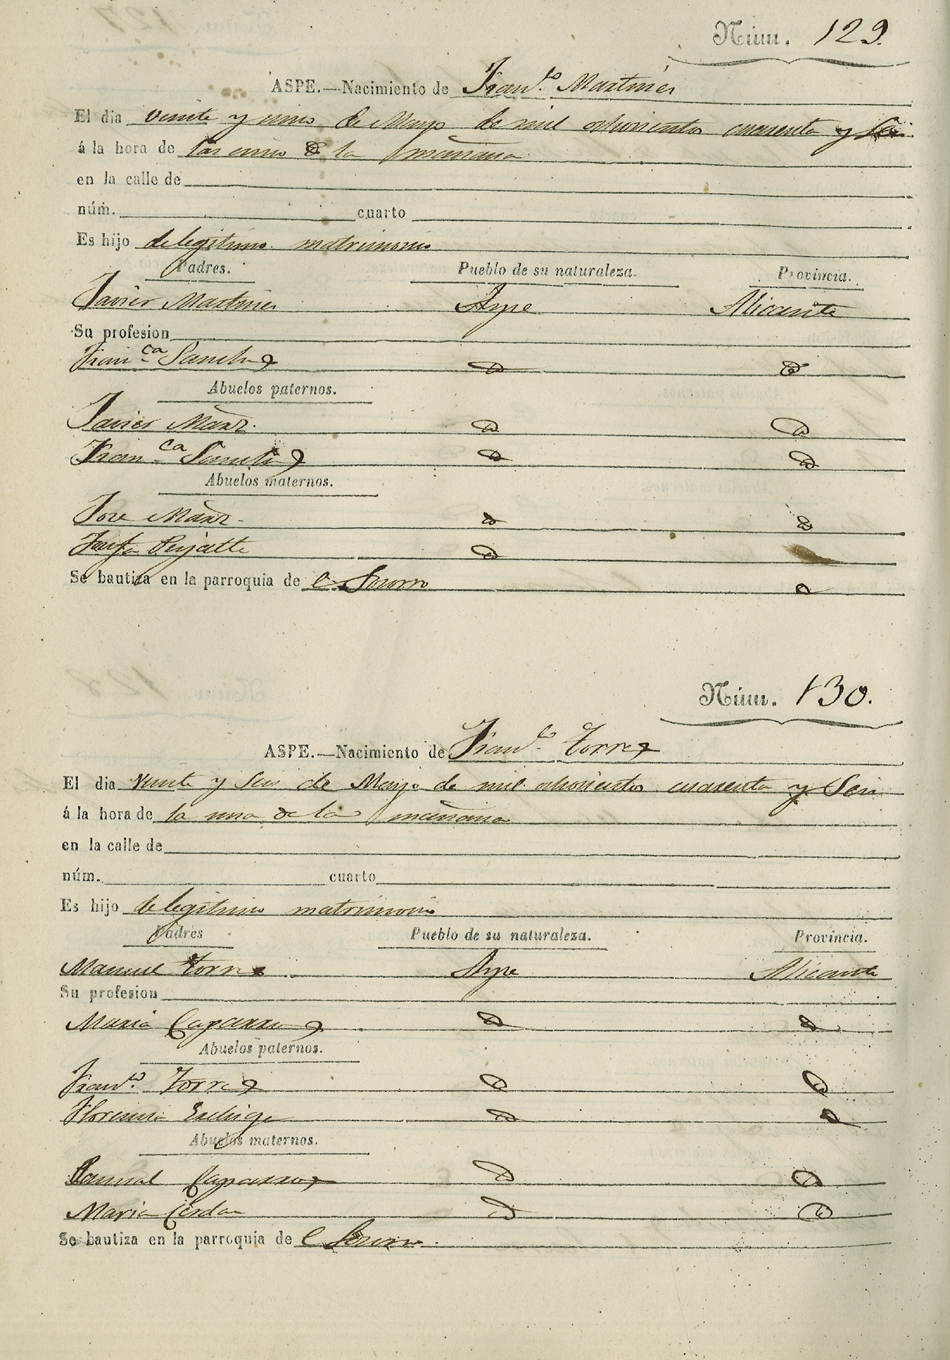 Núm. 129.
ASPE.—Nacimiento de Fran.co Martines
El dia veinte y uno de Mayo de mil ochocientos cuarenta y Seis
á la hora de las once de la mañana
en la calle de
núm. cuarto
Es hijo de legitimo matrimonio
Padres. Pueblo de su naturaleza. Provincia.
Javier Martines Aspe Alicante
Su profesion
Fran.ca Sanchez
Abuelos paternos.
Javier Marz.
Fran.ca Sanchez
Abuelos maternos.
Jose Marz.
Se bautiza en la parroquia de el Socorro
Núm. 130.
ASPE.—Nacimiento de Fran.co Torres
El dia veinte y Seis de Mayo de mil ochocientos cuarenta y Seis
á la hora de la una de la mañana
en la calle de
núm. cuarto
Es hijo de legitimo matrimonio
Padres Pueblo de su naturaleza. Provincia.
Manuel Torres Aspe Alicante
Su profesion
Maria Caparros
Abuelos paternos.
Fran.co Torres
Florensia
Abuelos maternos.
Pascual Caparros
Maria Cerdan
Se bautiza en la parroquia de el Socorro.